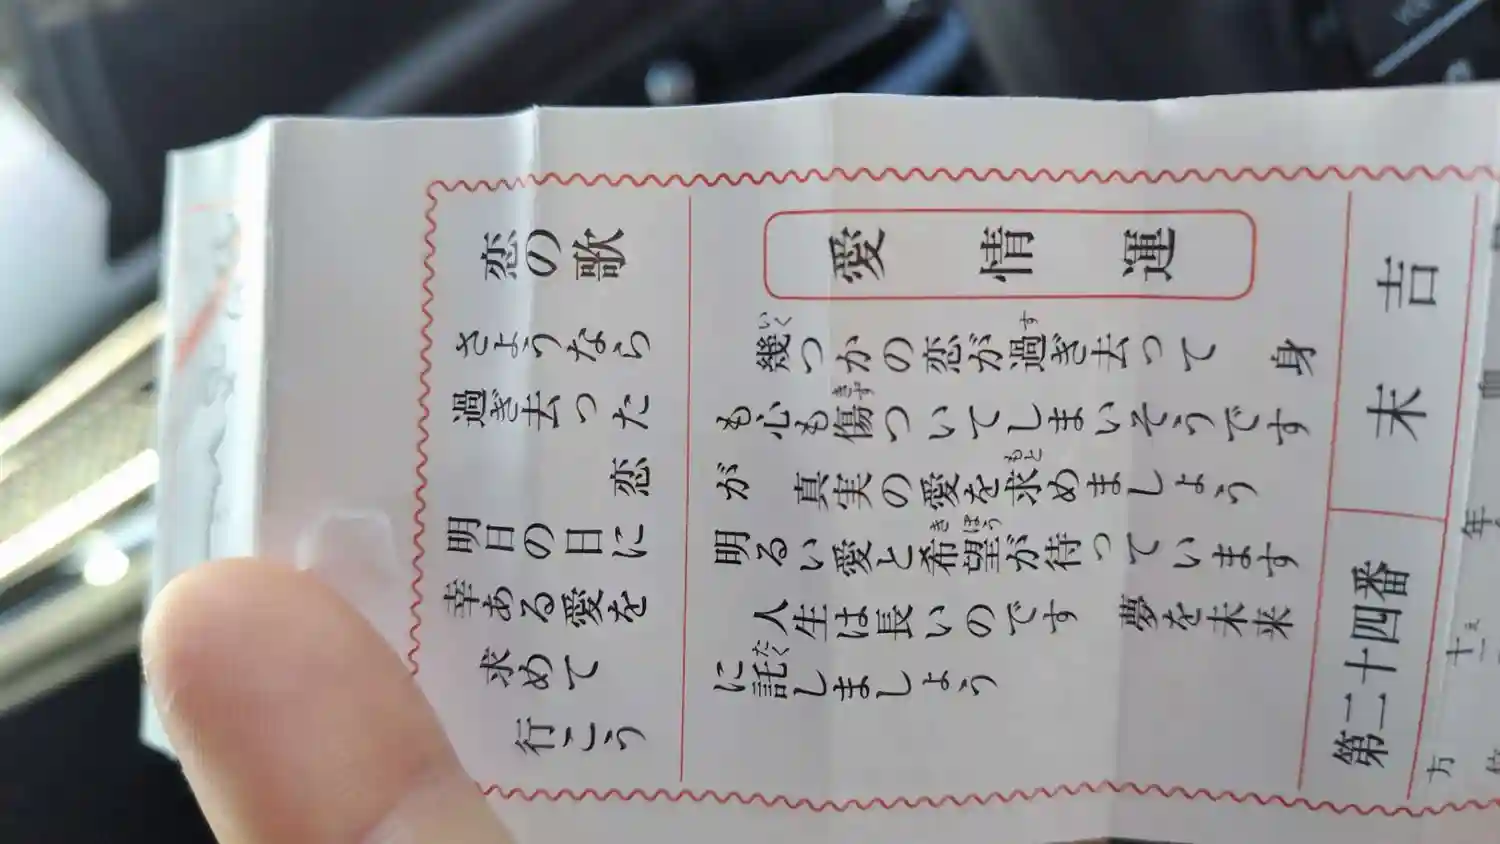 恋の歌
さようなら
過ぎ去った
恋
明日の日に
幸ある愛を
求めて
行こう
愛情運
いく す
幾つかの恋が過ぎ去って 身
きず
も心も傷ついてしまいそうです
もと
が 真実の愛を求めましょう
きぼう
明るい愛と希望が待っています
人生は長いのです 夢を未来
たく
に託しましょう
第二十四番
末吉